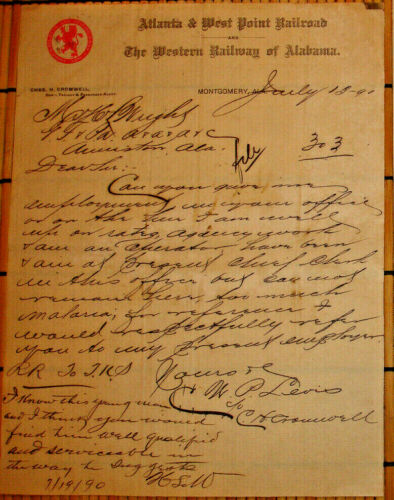 Atlanta & West Point Railroad
AND
The Western Railway of Alabama.
CHAS. H. CROMWELL,
GEN'L FREIGHT & PASSENGER AGENT.
MONTGOMERY, ALA. July 18-90
Mr
Anniston Ala.
file
303
Dear Sir:-
Can you give me
employment in your office
or on the line I am well
up on rates, agency work
& am an operator, have been
& am at present Chief Clerk
in this office but can not
remain here, too much
Malaria; for reference I
would respectfully refer
you to my present employer.
RR to
Yours &c
W. P. Levis
c/o C H Cromwell
I know this young man
and I think you would
find him well qualified
and serviceable in
the way he suggests
7/19/90